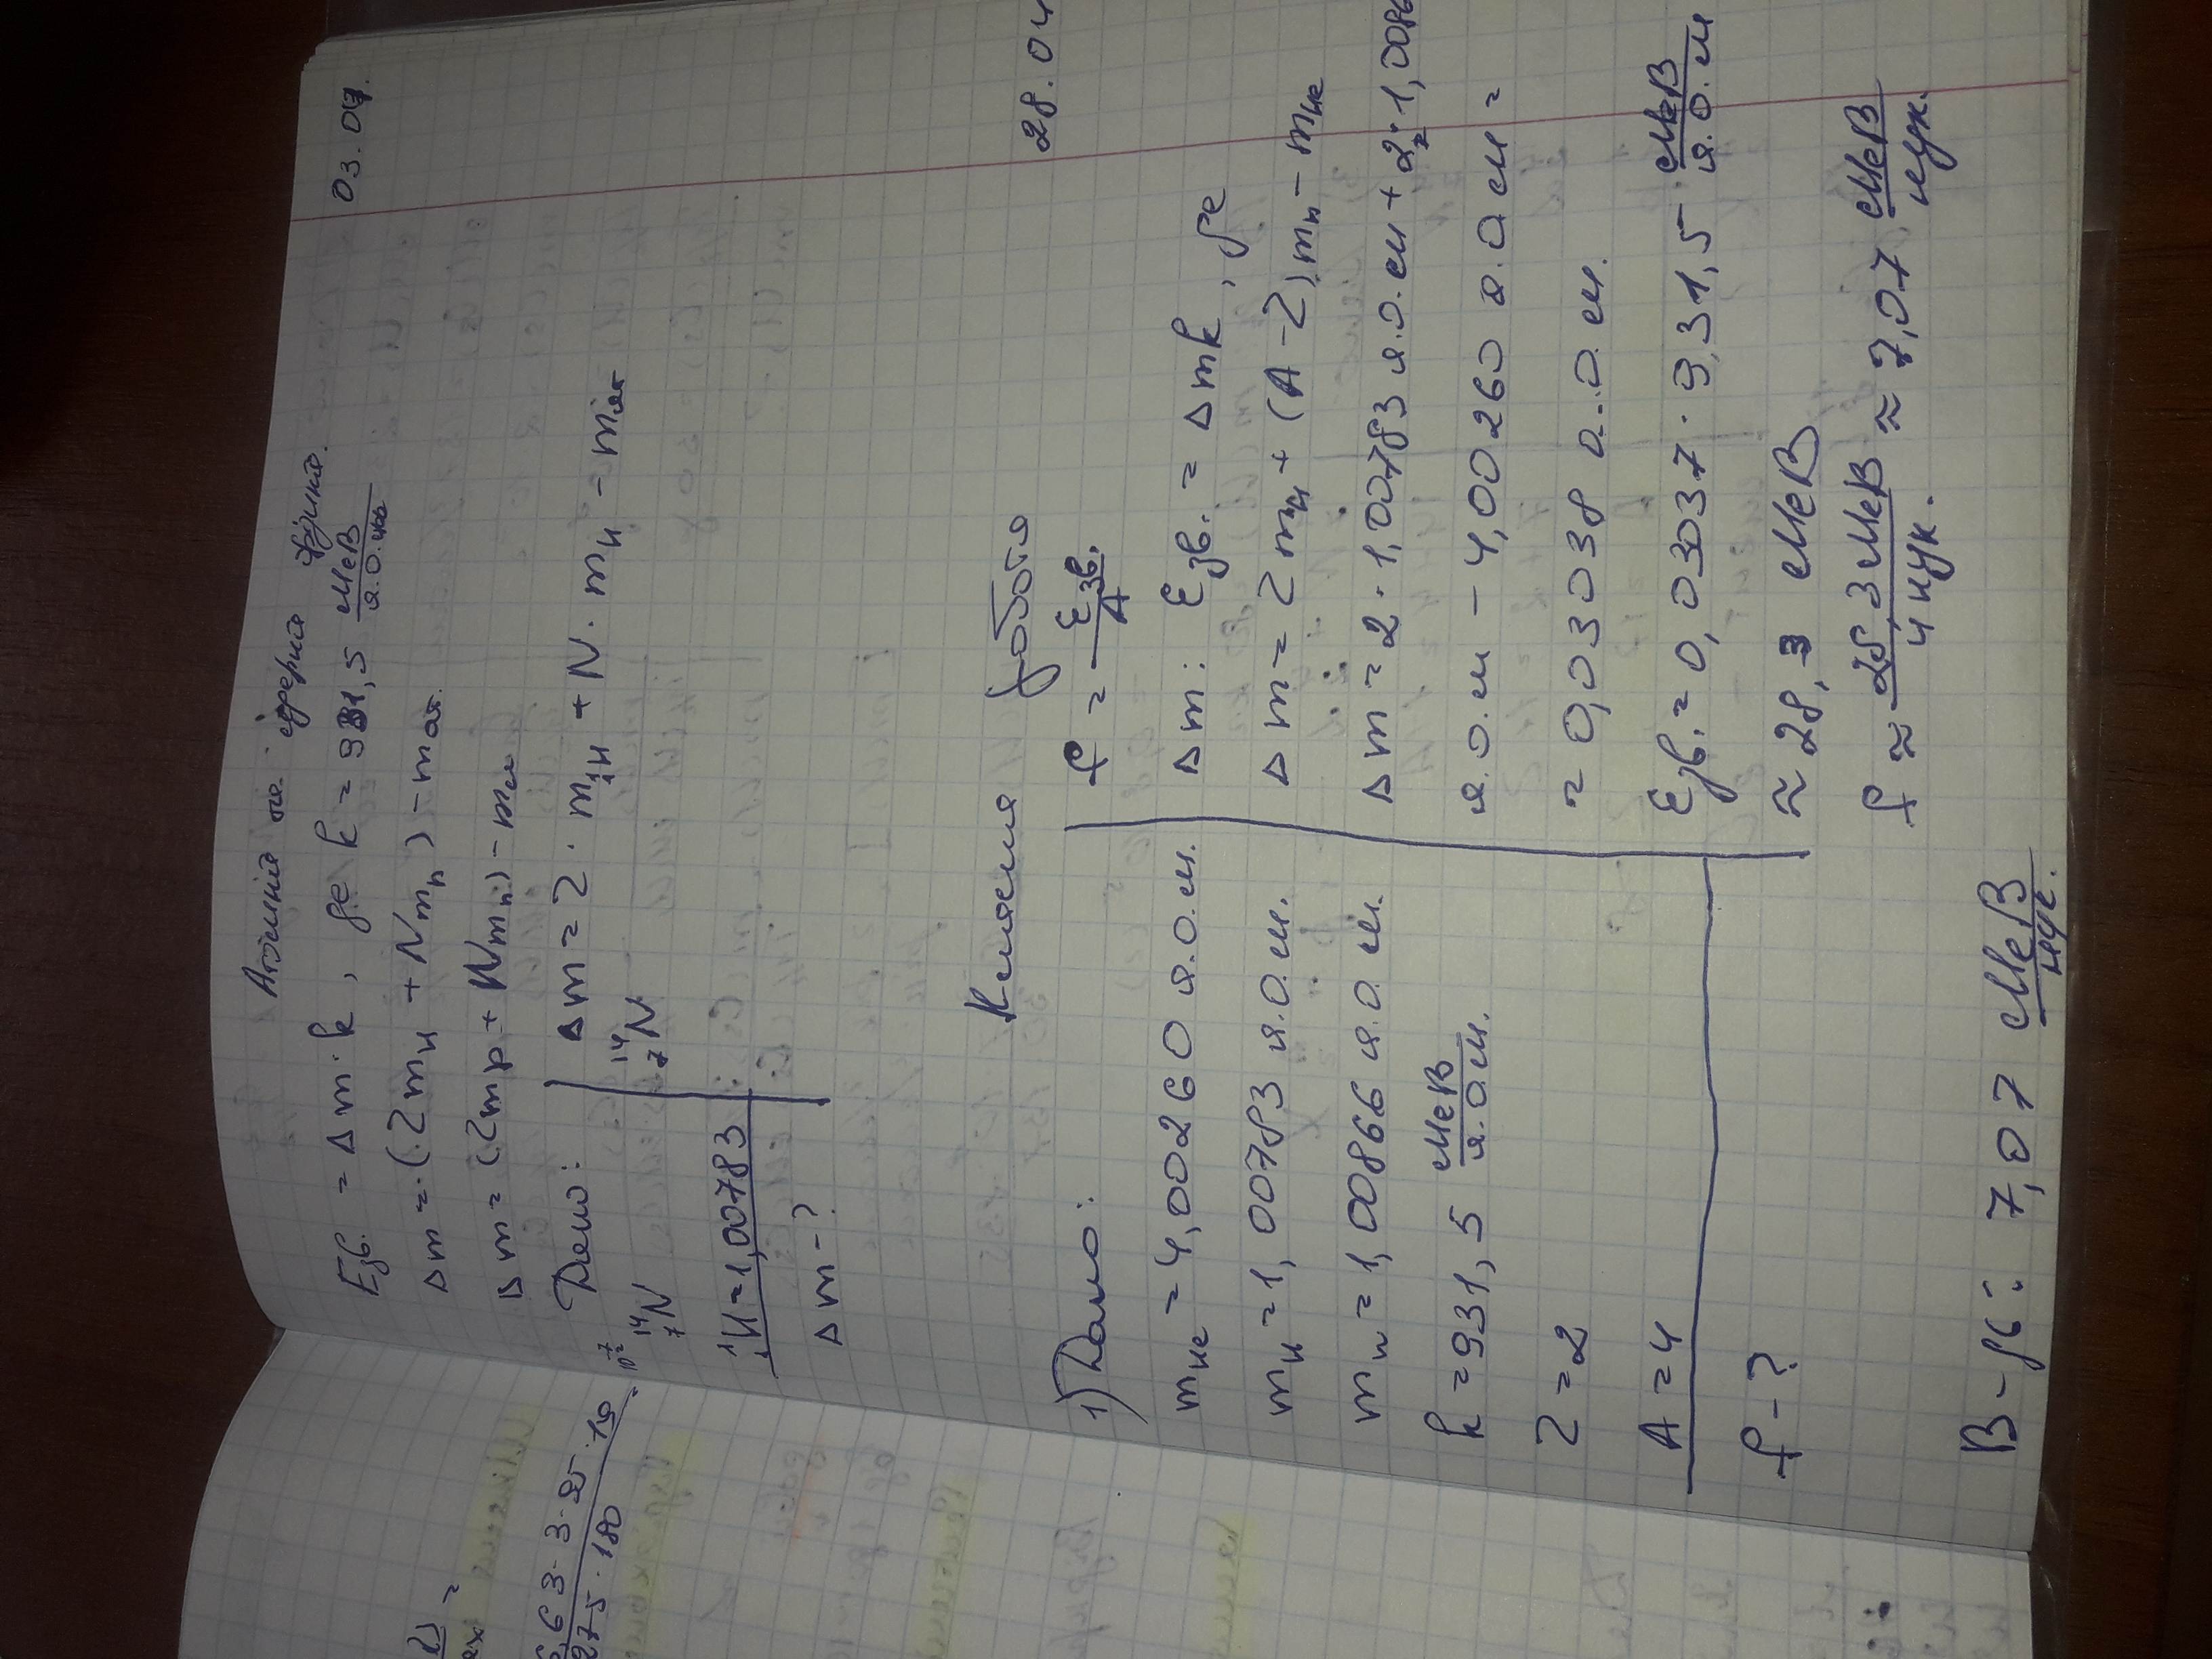 03.04.
Атомна та ядерна фізика.
Eзв. = Δm·k, де k = 931,5 МеВ/а.о.м
Δm = (Zmн + Nmn) - mат.
Δm = (Zmp + Nmn) - mя
Дано:
¹⁴₇N
¹₁H = 1,00783
Δm - ?
Δm = Z · m¹₁H + N · mn - mат
¹⁴₇N
28.04
Класна робота
1) Дано:
mHe = 4,00260 а.о.м.
mH = 1,00783 а.о.м.
mn = 1,00866 а.о.м.
k = 931,5 МеВ/а.о.м.
Z = 2
A = 4
f - ?
f = Eзв./A
Δm: Eзв. = Δmk, де
Δm = ZmH + (A - Z)mn - mHe
Δm = 2 · 1,00783 а.о.м + 2 · 1,0086
а.о.м - 4,00260 а.о.м =
= 0,03038 а.о.м.
Eзв. = 0,03037 · 931,5 МеВ/а.о.м
≈ 28,3 МеВ
f ≈ 28,3 МеВ/4 нук. ≈ 7,07 МеВ/нук.
В-дь: 7,07 МеВ/нук.
6,63·3·25·10
275·180